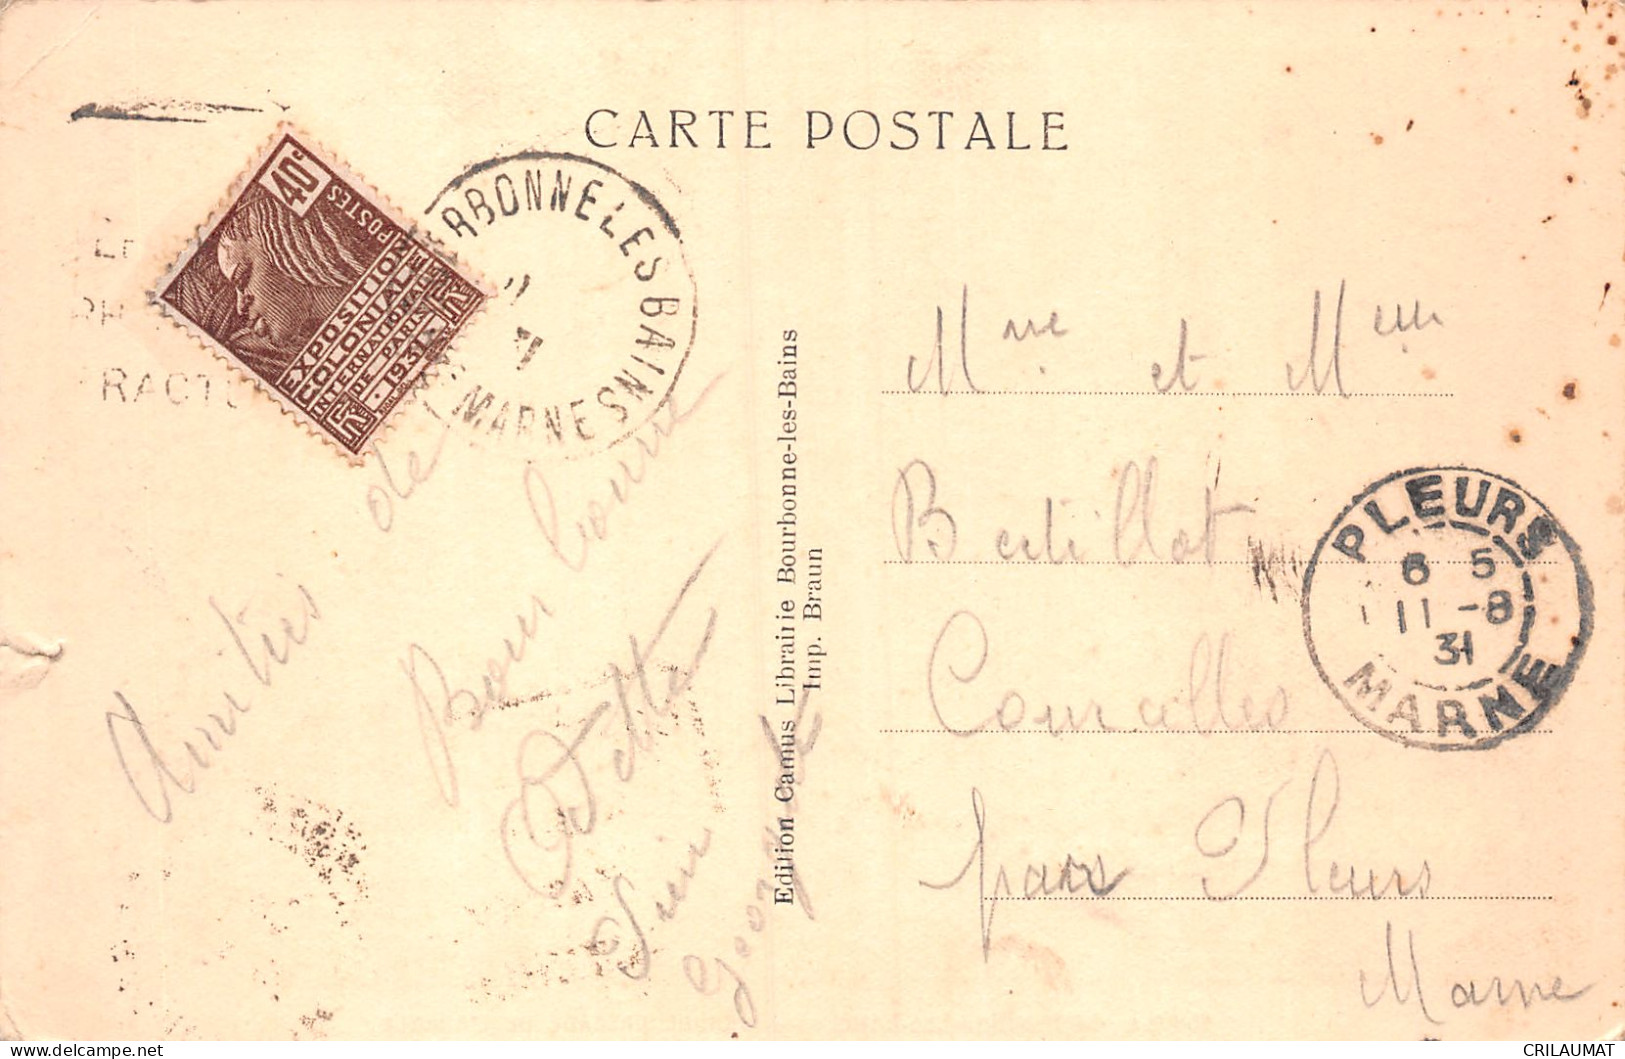 CARTE POSTALE
40c
POSTES
EXPOSITION
COLONIALE
INTERNATIONALE
DE PARIS
1931
RF
RF
RBONNE-LES-BAINS
MARNE
RACT
Amitiés de
Bourbonne
Odette
Georgette
Edition Camus Librairie Bourbonne-les-Bains
Imp. Braun
Mme et Mr
Bertillot
Courcelles
par Pleurs
Marne
PLEURS
6 5
11 -8
31
MARNE
CRILAUMAT